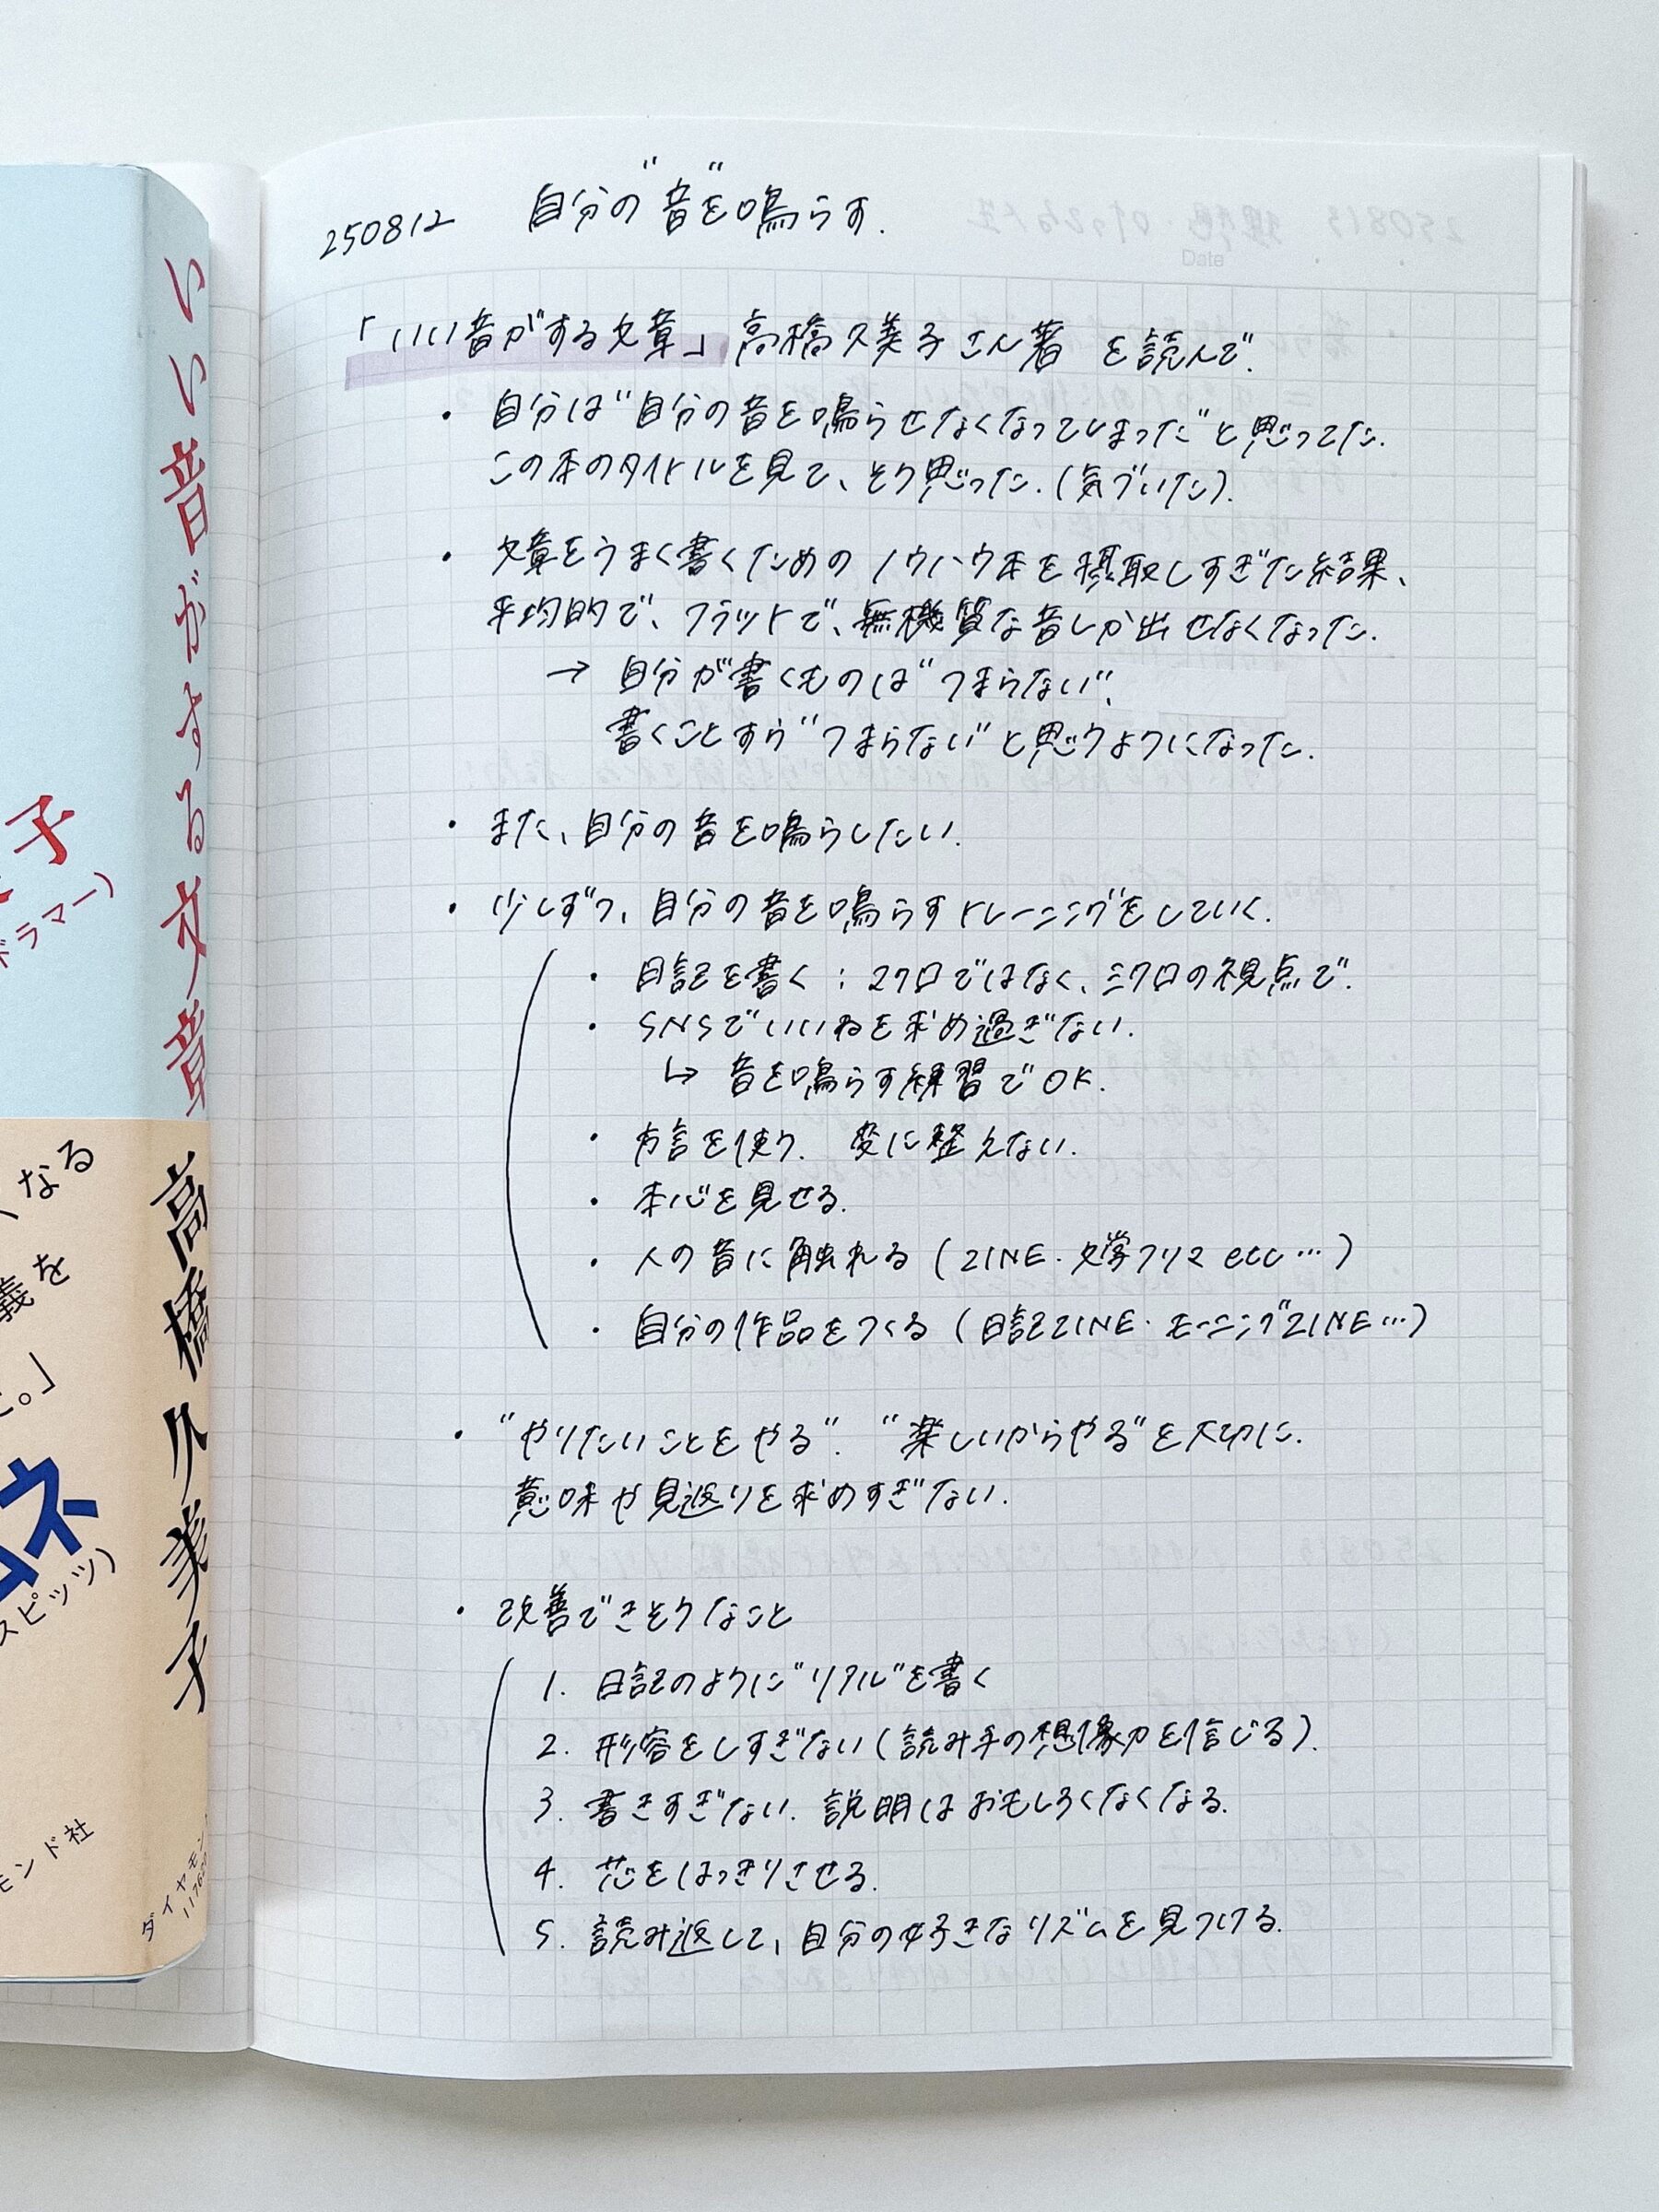 いい音がする文章 高橋久美子
子
ドラマー）
くなる
義を
と。」
ネ
スピッツ）
モンド社
ダイヤモン
250812 自分の"音"を鳴らす.
「いい音がする文章」高橋久美子さん著 を読んで.
・ 自分は"自分の音を鳴らせなくなってしまった"と思ってた.
この本のタイトルを見て、そう思った.(気づいた).
・ 文章をうまく書くためのノウハウ本を摂取しすぎた結果、
平均的で、フラットで、無機質な音しか出せなくなった.
→ 自分が書くものは"つまらない",
書くことすら"つまらない"と思うようになった.
・ また、自分の音を鳴らしたい.
・ 少しずつ、自分の音を鳴らすトレーニングをしていく.
・ 日記を書く：マクロではなく、ミクロの視点で.
・ SNSでいいねを求め過ぎない.
↳ 音を鳴らす練習でOK.
・ 方言を使う. 変に整えない.
・ 本心を見せる.
・ 人の音に触れる (ZINE・文学フリマ etc…)
・ 自分の作品をつくる (日記ZINE・モーニングZINE…)
・ "やりたいことをやる". "楽しいからやる"を大切に.
意味や見返りを求めすぎない.
・ 改善できそうなこと
1. 日記のように"リアル"を書く
2. 形容をしすぎない(読み手の想像力を信じる).
3. 書きすぎない. 説明はおもしろくなくなる.
4. 芯をはっきりさせる.
5. 読み返して、自分の好きなリズムを見つける.
Date